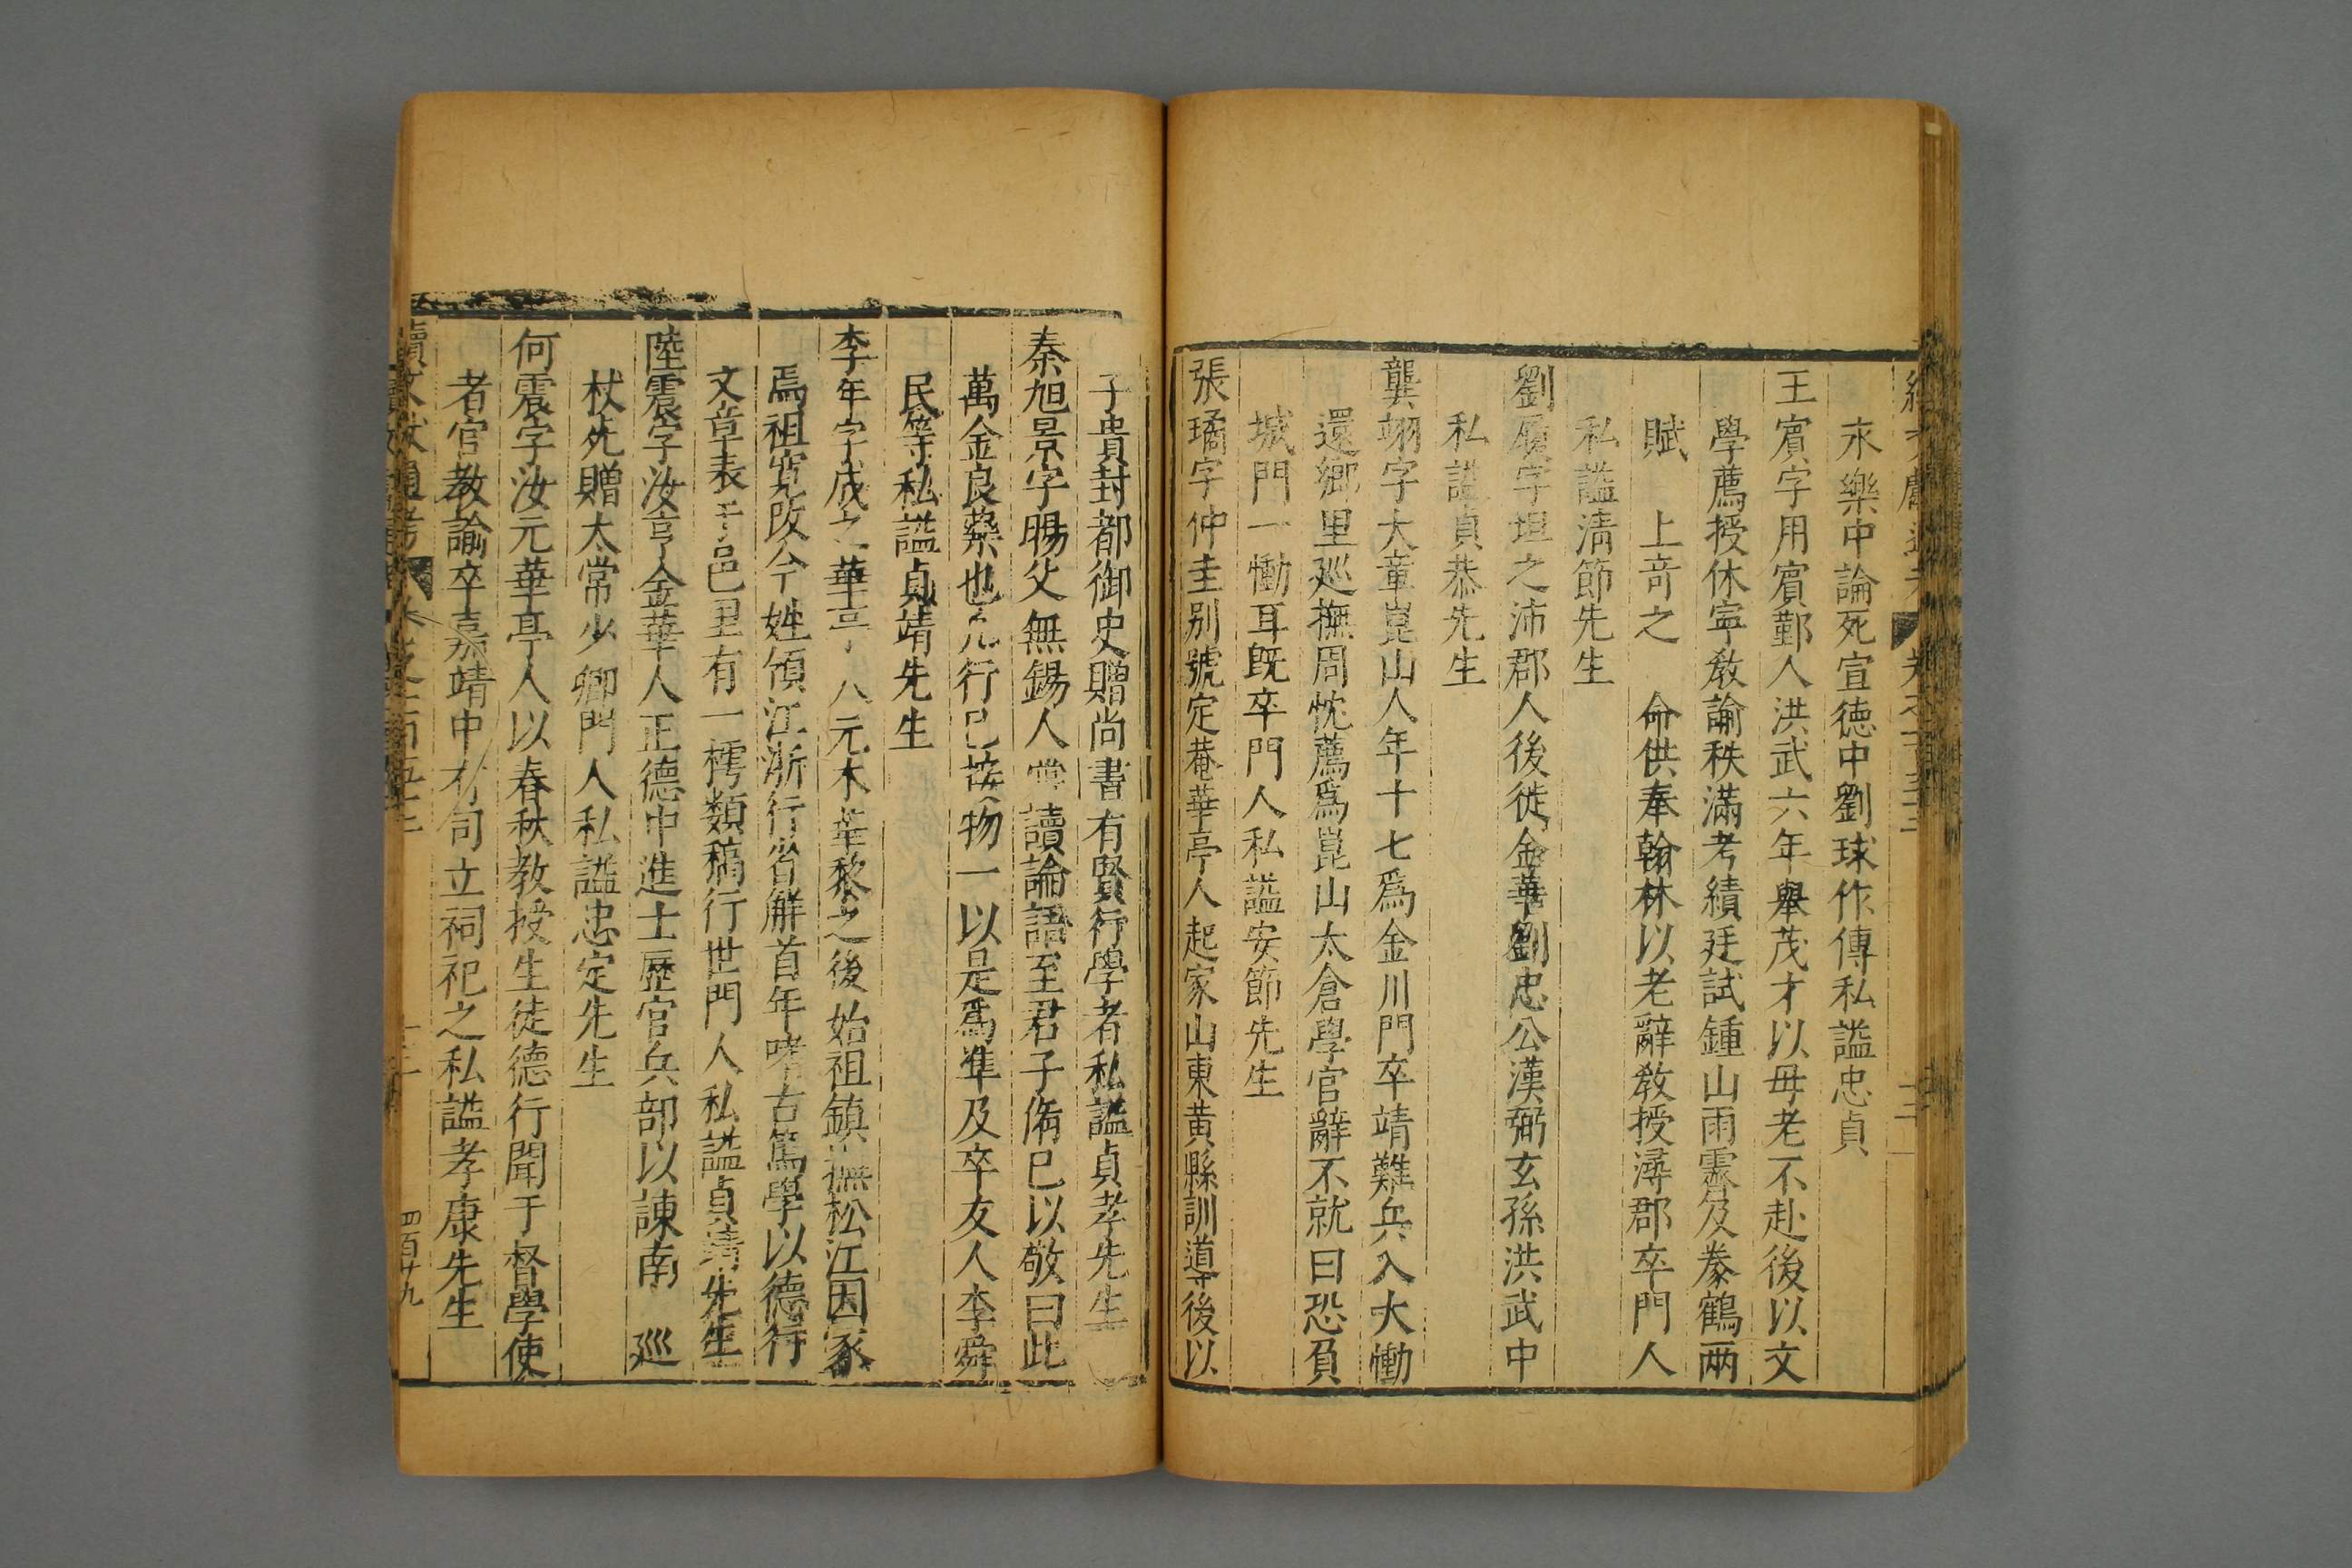 永樂中論死宣德中劉球作傳私謚忠貞
王賓字用賓鄞人洪武六年舉茂才以母老不赴後以文
學薦授休寧教諭秩滿考績廷試鍾山雨霽及豢鶴兩
賦 上奇之 命供奉翰林以老辭敎授潯郡卒門人
私謚淸節先生
劉履字坦之沛郡人後徙金華劉忠公漢弼玄孫洪武中
私謚貞恭先生
龔翊字大章崑山人年十七爲金川門卒靖難兵入大慟
還鄉里巡撫周忱薦爲崑山太倉學官辭不就曰恐負
城門一慟耳旣卒門人私謚安節先生
張璚字仲圭别號定菴華亭人起家山東黃縣訓導後以
子貴封都御史贈尚書有賢行學者私謚貞孝先生
秦旭景字暘父無錫人嘗讀論語至君子脩己以敬曰此
萬金良藥也凡行己接物一以是爲準及卒友人李舜
民等私謚貞靖先生
李年字成之華亭人元木華黎之後始祖鎮撫松江因家
焉祖寬改今姓領江浙行省解首年嗜古篤學以德行
文章表于邑里有一樗類稿行世門人私謚貞靖先生
陸震字汝亨金華人正德中進士歷官兵部以諫南 巡
杖死贈太常少卿門人私謚忠定先生
何震字汝元華亭人以春秋教授生徒德行聞于督學使
者官教諭卒嘉靖中有司立祠祀之私謚孝康先生
續文獻通考 卷之一百五十二 四百廿九